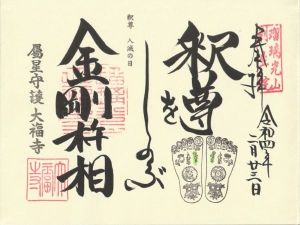 瑠璃光山
令和四年
二月廿三日
釈尊を
しのぶ
釈尊 入滅の日
金剛杵相
属星守護 大福寺